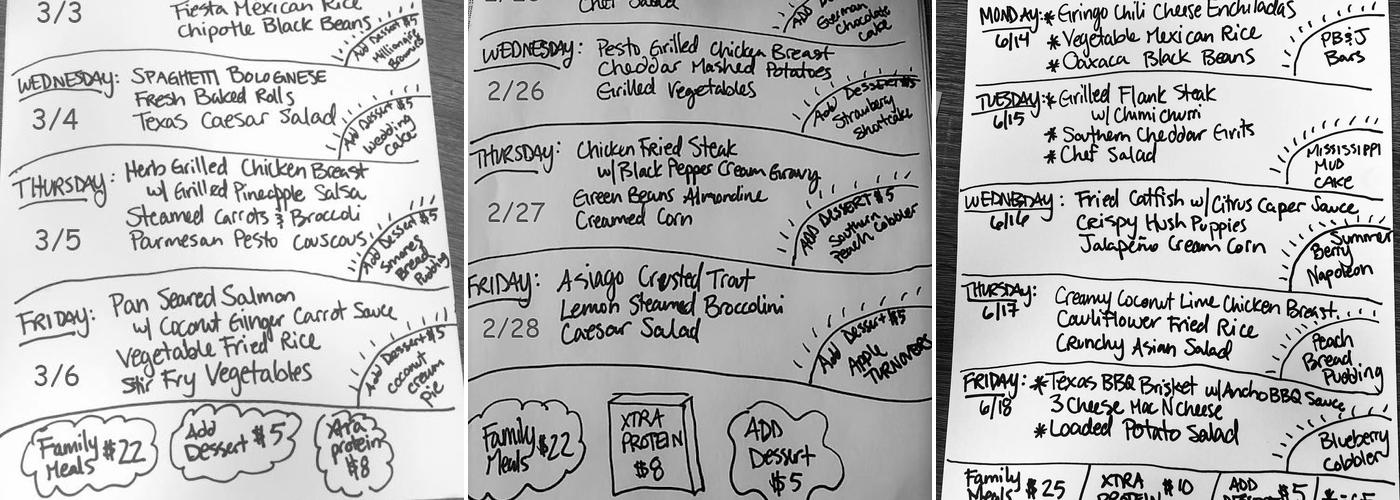 3/3
Fiesta Mexican Rice
Chipotle Black Beans
Add Dessert $5
Millionaire
Brownies
WEDNESDAY: SPAGHETTI BOLOGNESE
3/4
Fresh Baked Rolls
Texas Caesar Salad
Add Dessert $5
Wedding
Cake
THURSDAY: Herb Grilled Chicken Breast
w/ Grilled Pineapple Salsa
3/5
Steamed Carrots & Broccoli
Parmesan Pesto Couscous
Add Dessert $5
Smores
Bread
Pudding
FRIDAY: Pan Seared Salmon
w/ Coconut Ginger Carrot Sauce
3/6
Vegetable Fried Rice
Stir Fry Vegetables
Add Dessert $5
Coconut
cream
Pie
Family $22
Meals
Add
Dessert $5
Xtra
protein
$8
Chef Salad
ADD
German
Chocolate
Cake
WEDNESDAY: Pesto Grilled Chicken Breast
2/26
Cheddar Mashed Potatoes
Grilled Vegetables
Add Dessert $5
Strawberry
Shortcake
THURSDAY: Chicken Fried Steak
w/ Black Pepper Cream Gravy
2/27
Green Beans Almondine
Creamed Corn
ADD DESSERT $5
Southern
Peach Cobbler
FRIDAY: Asiago Crusted Trout
2/28
Lemon Steamed Broccolini
Caesar Salad
Add Dessert $5
Apple
TURNOVERS
Family $22
Meals
XTRA
PROTEIN
$8
ADD
Dessert
$5
MONDAY: * Gringo Chili Cheese Enchiladas
6/14
* Vegetable Mexican Rice
* Oaxaca Black Beans
PB&J
Bars
TUESDAY: * Grilled Flank Steak
6/15
w/ Chimichurri
* Southern Cheddar Grits
* Chef Salad
MISSISSIPPI
MUD
CAKE
WEDNESDAY: Fried Catfish w/ Citrus Caper Sauce
6/16
Crispy Hush Puppies
Jalapeño Cream Corn
Summer
Berry
Napoleon
THURSDAY: Creamy Coconut Lime Chicken Breast
6/17
Cauliflower Fried Rice
Crunchy Asian Salad
Peach
Bread
Pudding
FRIDAY: * Texas BBQ Brisket w/ Ancho BBQ Sauce
6/18
3 Cheese Mac N Cheese
* Loaded Potato Salad
Blueberry
Cobbler
Family $25
Meals
XTRA $10
PROTEIN
ADD $5